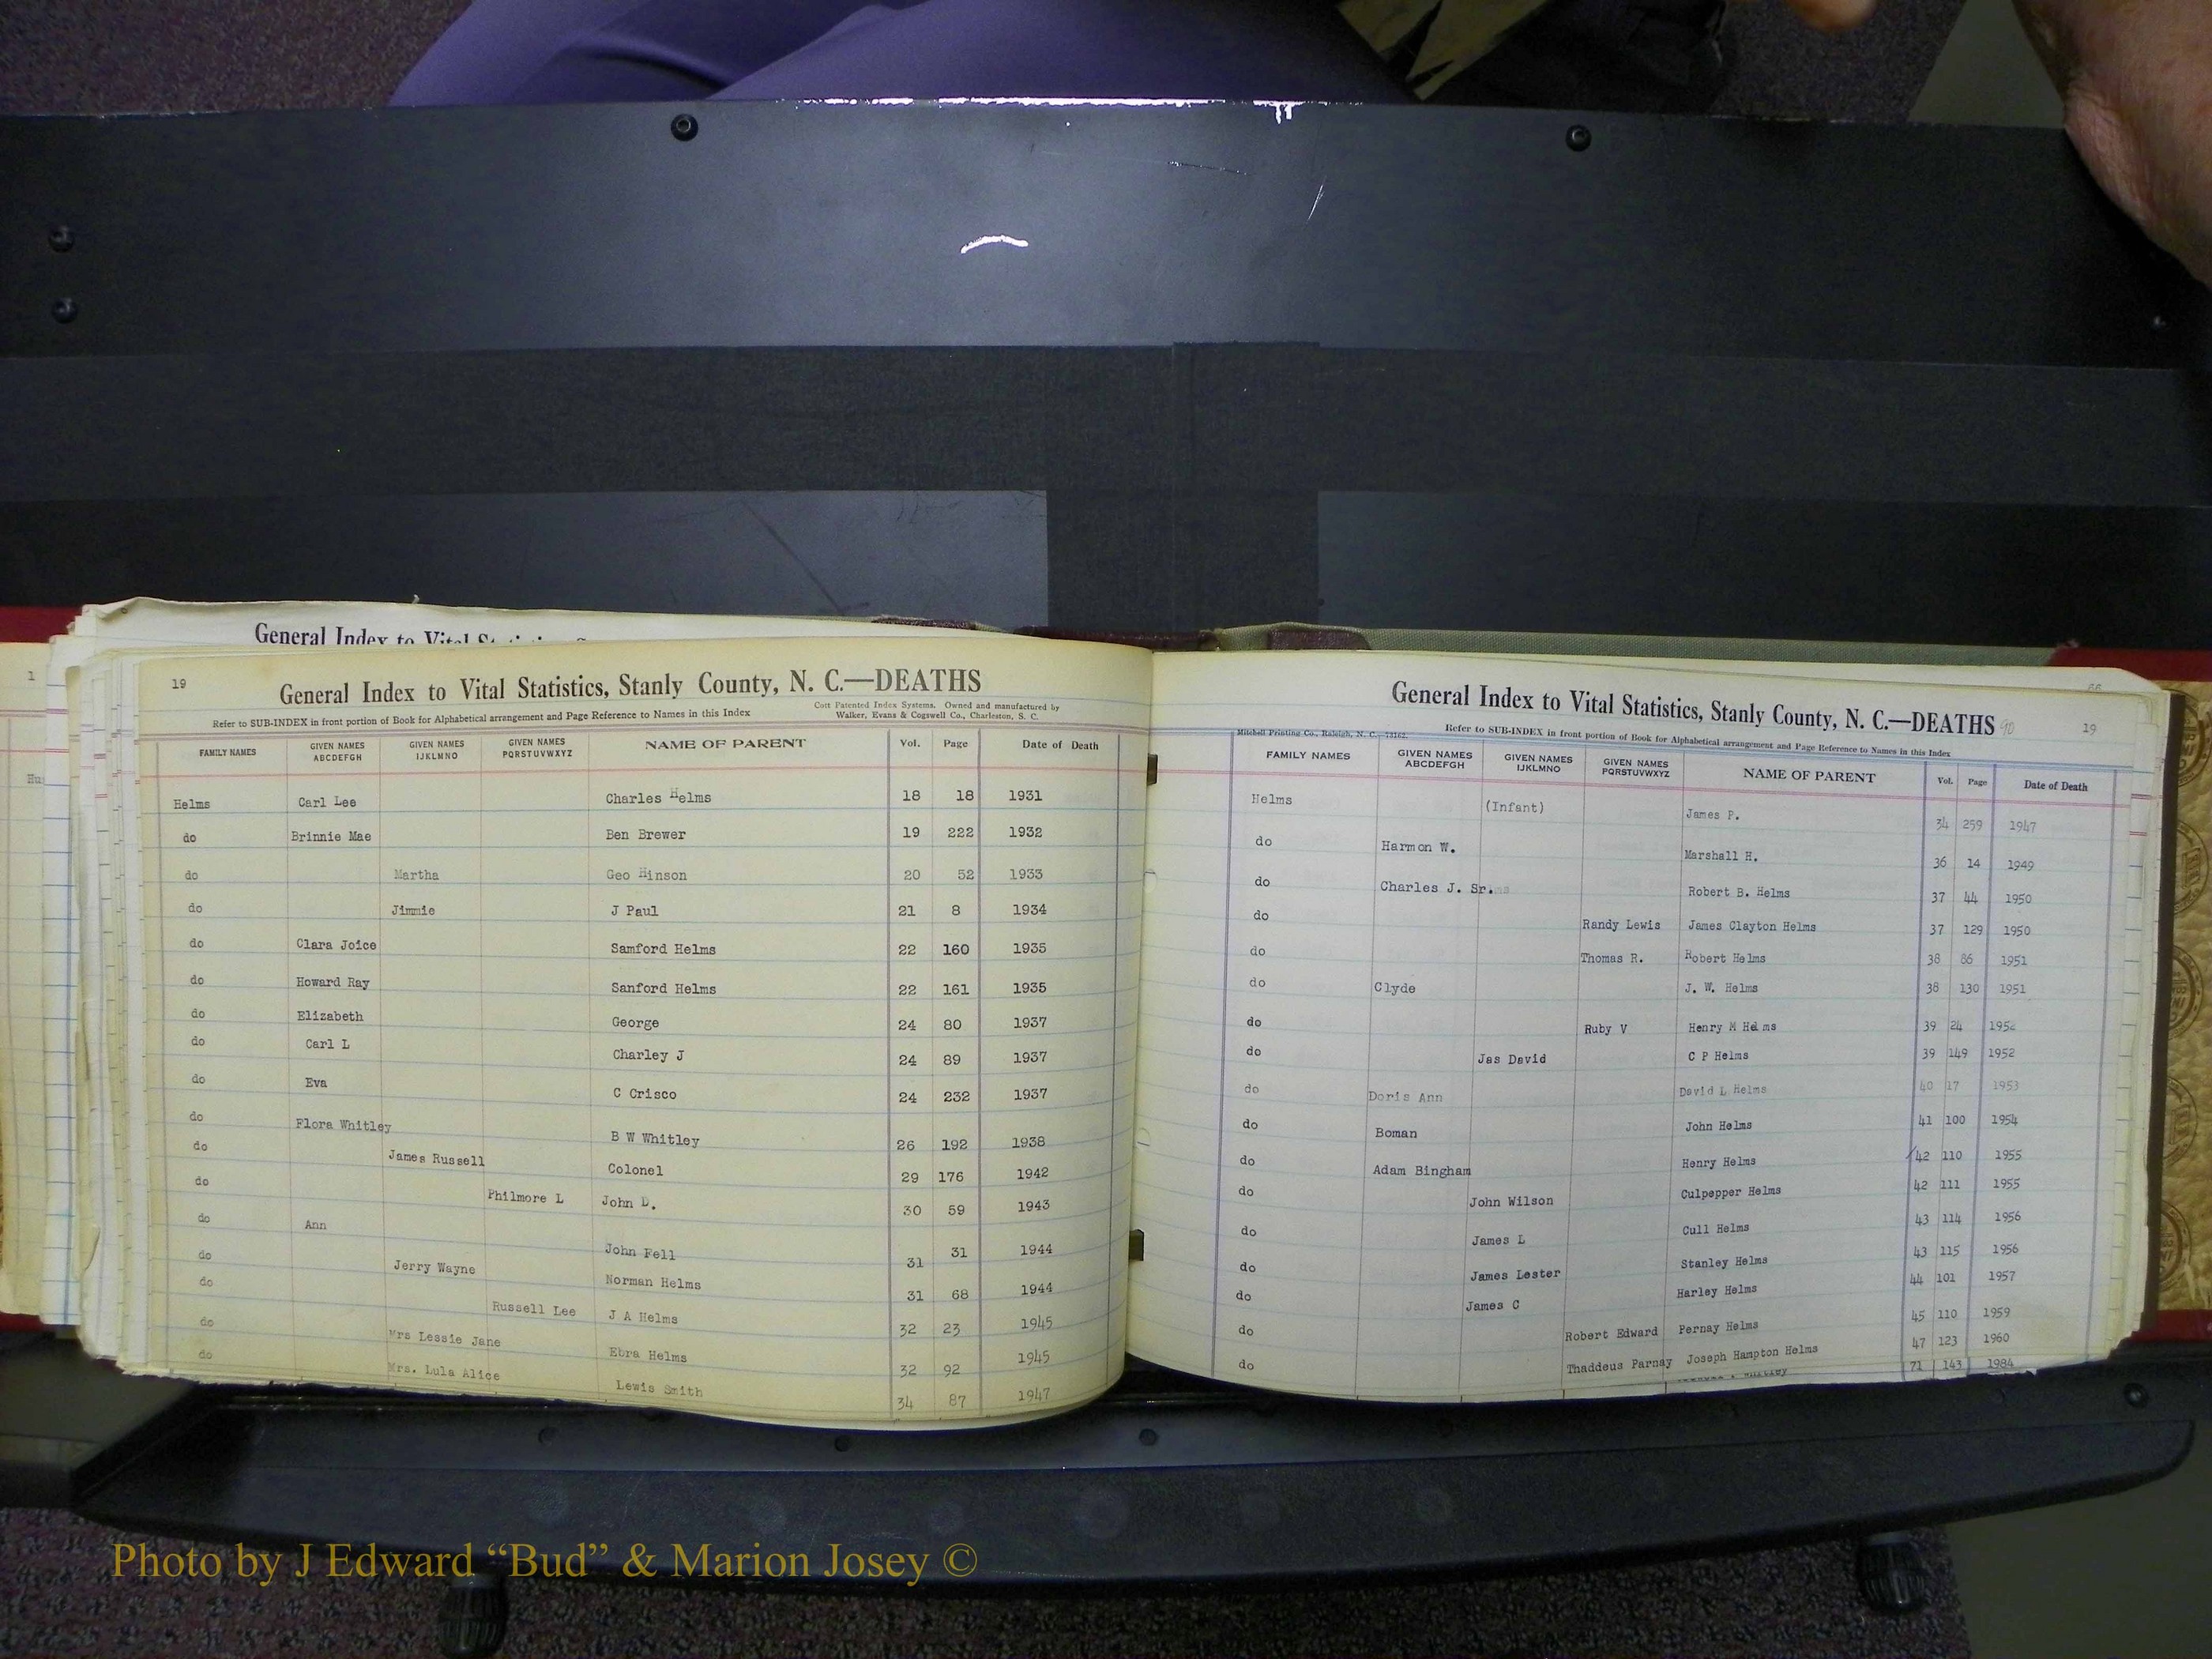 General Index to Vital
19
General Index to Vital Statistics, Stanly County, N. C.—DEATHS
Refer to SUB-INDEX in front portion of Book for Alphabetical arrangement and Page Reference to Names in this Index
Cott Patented Index Systems. Owned and manufactured by
Walker, Evans & Cogswell Co., Charleston, S. C.
FAMILY NAMES GIVEN NAMES ABCDEFGH GIVEN NAMES IJKLMNO GIVEN NAMES PQRSTUVWXYZ NAME OF PARENT Vol. Page Date of Death
Helms Carl Lee Charles Helms 18 18 1931
do Brinnie Mae Ben Brewer 19 222 1932
do Martha Geo Hinson 20 52 1933
do Jimmie J Paul 21 8 1934
do Clara Joice Samford Helms 22 160 1935
do Howard Ray Sanford Helms 22 161 1935
do Elizabeth George 24 80 1937
do Carl L Charley J 24 89 1937
do Eva C Crisco 24 232 1937
do Flora Whitley B W Whitley 26 192 1938
do James Russell Colonel 29 176 1942
do Philmore L John D. 30 59 1943
do Ann John Fell 31 31 1944
do Jerry Wayne Norman Helms 31 68 1944
do Russell Lee J A Helms 32 23 1945
do Mrs Lessie Jane Ebra Helms 32 92 1945
do Mrs. Lula Alice Lewis Smith 34 87 1947
General Index to Vital Statistics, Stanly County, N. C.—DEATHS 90 19
Mitchell Printing Co., Raleigh, N. C.—13162
Refer to SUB-INDEX in front portion of Book for Alphabetical arrangement and Page Reference to Names in this Index
FAMILY NAMES GIVEN NAMES ABCDEFGH GIVEN NAMES IJKLMNO GIVEN NAMES PQRSTUVWXYZ NAME OF PARENT Vol. Page Date of Death
Helms (Infant) James P. 34 259 1947
do Harmon W. Marshall H. 36 14 1949
do Charles J. Sr. Robert B. Helms 37 44 1950
do Randy Lewis James Clayton Helms 37 129 1950
do Thomas R. Robert Helms 38 86 1951
do Clyde J. W. Helms 38 130 1951
do Ruby V Henry M Helms 39 24 1952
do Jas David C P Helms 39 149 1952
do Doris Ann David L Helms 40 17 1953
do Boman John Helms 41 100 1954
do Adam Bingham Henry Helms 42 110 1955
do John Wilson Culpepper Helms 42 111 1955
do James L Cull Helms 43 114 1956
do James Lester Stanley Helms 43 115 1956
do James C Harley Helms 44 101 1957
do Robert Edward Pernay Helms 45 110 1959
do Thaddeus Parnay Joseph Hampton Helms 47 123 1960
71 143 1984
Photo by J Edward “Bud” & Marion Josey ©